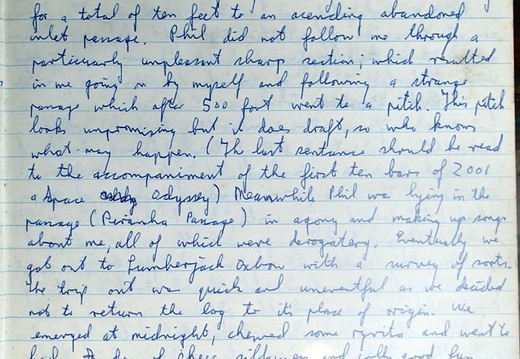 for a total of ten feet to an acending abandoned
inlet passage. Phil did not follow me through a
particuarly unpleasant sharp section; which resulted
in me going on by myself and following a strange
passage which after 500 foot went to a pitch. This pitch
looks unpromising but it does draft, so who knows
what may happen. (The last sentance should be read
to the accompaniment of the first ten bars of 2001
a space odyssey) Meanwhile Phil was lying in the
passage (Piranha Passage) in agony and making up songs
about me, all of which were derogatory. Eventually we
got out to Lumberjack Oxbow with a survey of sorts.
The trip out was quick and uneventful as we decided
not to return the log to its place of origin. We
emerged at midnight, chewed some ryvita and went to
bed. A day of